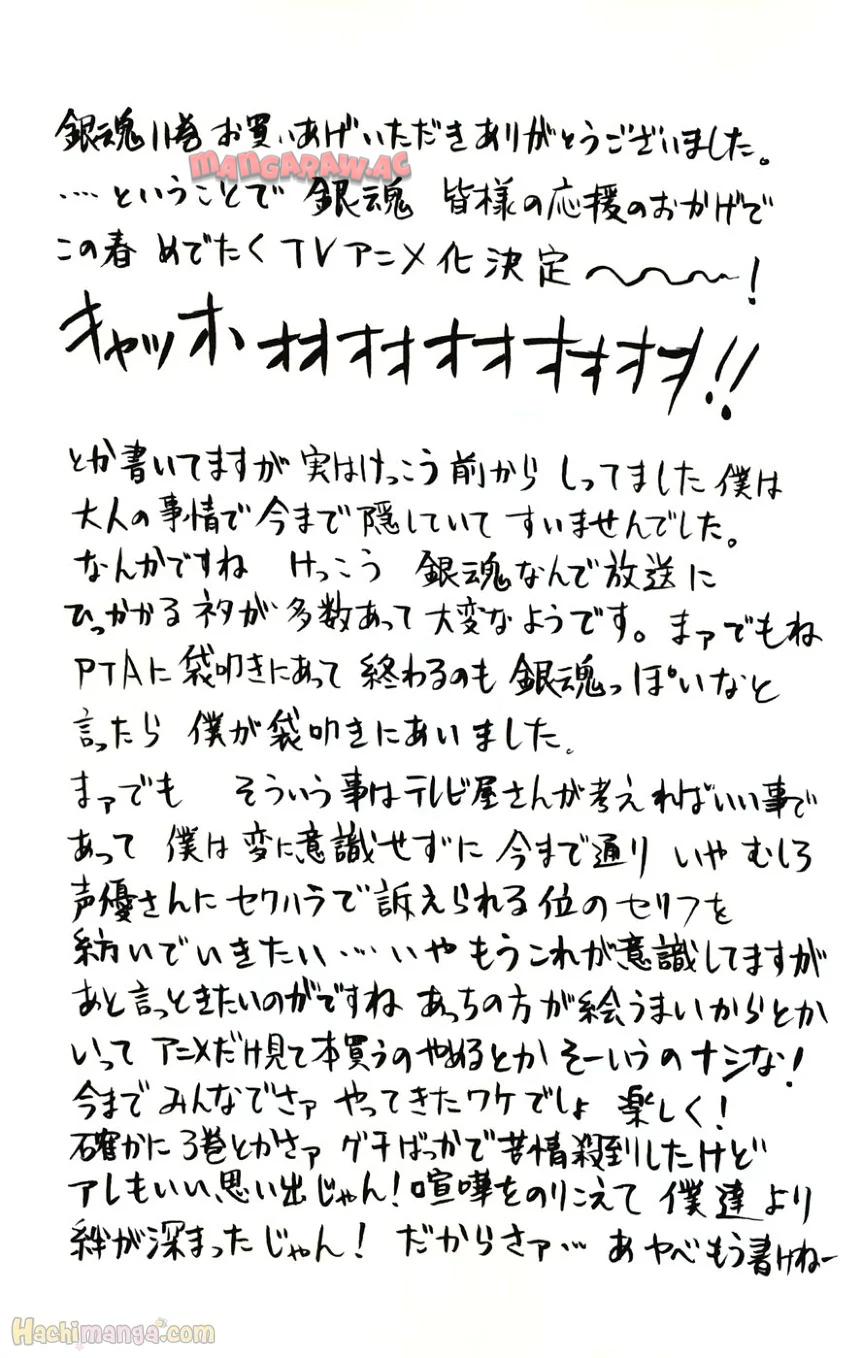 銀魂11巻お買いあげいただきありがとうございました。
MANGARAW.AC
……ということで 銀魂 皆様の応援のおかげで
この春 めでたくTVアニメ化決定〜〜〜!
キャッホォオオオオオオオオオヲ!!
とか書いてますが 実はけっこう前から しってました僕は
大人の事情で今まで隠していて すいませんでした。
なんかですね けっこう 銀魂なんで放送に
ひっかかるネタが多数あって大変なようです。まァでもね
PTAに袋叩きにあって 終わるのも 銀魂っぽいなと
言ったら 僕が袋叩きにあいました。
まァでも そういう事はテレビ屋さんが考えればいい事で
あって 僕は変に意識せずに 今まで通り いや むしろ
声優さんに セクハラで訴えられる位のセリフを
紡いでいきたい……いや もうこれが意識してますが
あと言っときたいのがですね あっちの方が絵うまいからとか
いって アニメだけ見て本買うのやめるとか そーいうのナシな!
今まで みんなでさァ やってきたワケでしょ 楽しく!
確かに 3巻とかさァ グチばっかで苦情殺到したけど
アレもいい思い出じゃん!喧嘩をのりこえて 僕達 より
絆が深まったじゃん! だからさァ… あ やべ もう書けねー
Hachimanga.com